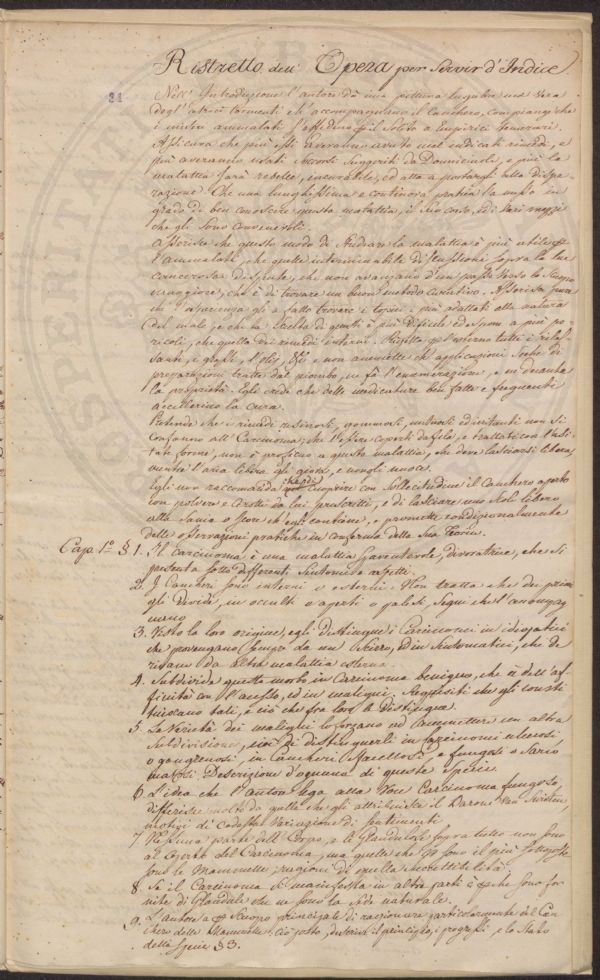 Ristretto dell' Opera per Servir d'Indice
21
Nell' Introduzione l'autore dà una pittura lugubre ma vera
degl' atroci tormenti ch' accompagnano il Canchero, compiange che
i miseri ammalati s'affidano il solito a empirici temerari.
Assicura che più essi averanno avuto mal indicati rimedj, e
più averanno usati secreti suggeriti da Donnicciuole, e più la
malattia sarà rebelle, incurabile, ed atta a portargli alla dispe-
razione. Che una lunghissima e continova pratica l'a messo in
grado di ben conoscere questa malattia, il suo corso, ed i vari mezzi
che gli sono convenevoli.
Asserisce che questo modo di studiar la malattia è più utile
l'ammalati, che quelle interminabile discussioni sopra la lue
cancerosa disputate, che non avanzano d'un passo verso lo scopo
maggiore, che è di trovare un buon metodo curativo. Asserisce pure
che l'esperienza gli à fatto trovare i topici i più adattati alla natura
del male, e che la scelta di questi è più dificile ed espone a più pe-
ricoli, che quella dei rimedi interni. Rigetta l'esterno tutti i rilas-
santi, i grassi, l'olio, e non ammette che applicazioni secche di
preparazioni tratte dal piombo, ne fà l'enumerazione, e ne decanta
la proprietà. Egli crede che delle medicature ben fatte e frequenti
accellerino la cura.
Pretende che i rimedi resinosi, gommosi, untuosi ed irritanti non si
confanno all' Carcinoma; che l'essere coperti da fela, e trattati con l'usi-
tate forme, non è proficuo a questa malattia, che deve lasciarsi libera,
mentre l'aria libera gli giova, e non gli nuoce.
Egli non raccomanda che di cuoprire con sollecitudine il Canchero aperto
con polvere e cerotti da lui prescritti, e di lasciare uno scolo libero
alla Sania o Icor ch'egli contiene, e promette condizionalmente
delle osservazioni pratiche in conferma della sua Teoria.
Cap. 1º § 1. Il carcinoma è una malattia spaventevole, divoratrice, che si
presenta sotto differenti sintomi e aspetti.
2. I Cancheri sono interni e esterni. Non tratta che dei primi
gli divide, in occulti o aperti o palesi, segni che l'accompag
nano.
3. Visto la loro origine, egli distingue i Carcinomi in idiopatici
che provengono sempre da un Scirro, ed in sintomatici, che de
rivano da altra malattia esterna.
4. Subdivide questo morbo in Carcinoma benigno, che à dell' af-
finità con l'acesso, ed in maligni. Requisiti che gli consti
tuiscono tali, e ciò che fra loro li distingue.
5. La varietà dei maligni lo forzano ad ammettere un altra
subdivisione, cioè di distinguerli in carcinomi ulcerosi
o gangrenosi, in Cancheri sfacellosi e fungosi o Sarco
matosi. Descrizione d'ognuna di queste Specie.
6. L'idea che l'autore lega alla Voce Carcinoma fungoso,
differisce molto da quella che gli attribuisce il Barone Van Swieten,
motivi di codesta variazione di sentimenti
7. Nessuna parte dell' Corpo, e le Glandulose sopra tutto non sono
al coperto del Carcinoma, ma quelle che ci sono il più sottoposte
sono le Mammelle; ragioni di questa suscettibilità.
8. Se il Carcinoma si manifesta in altre parti è che sono for-
nite di Glandule che ne sono la sede naturale.
9. L'autore a Scuopo principale di ragionare particolarmente del Can
chero delle Mammelle, ciò posto, descrive il principio, i progressi e lo Stato
della specie § 3.